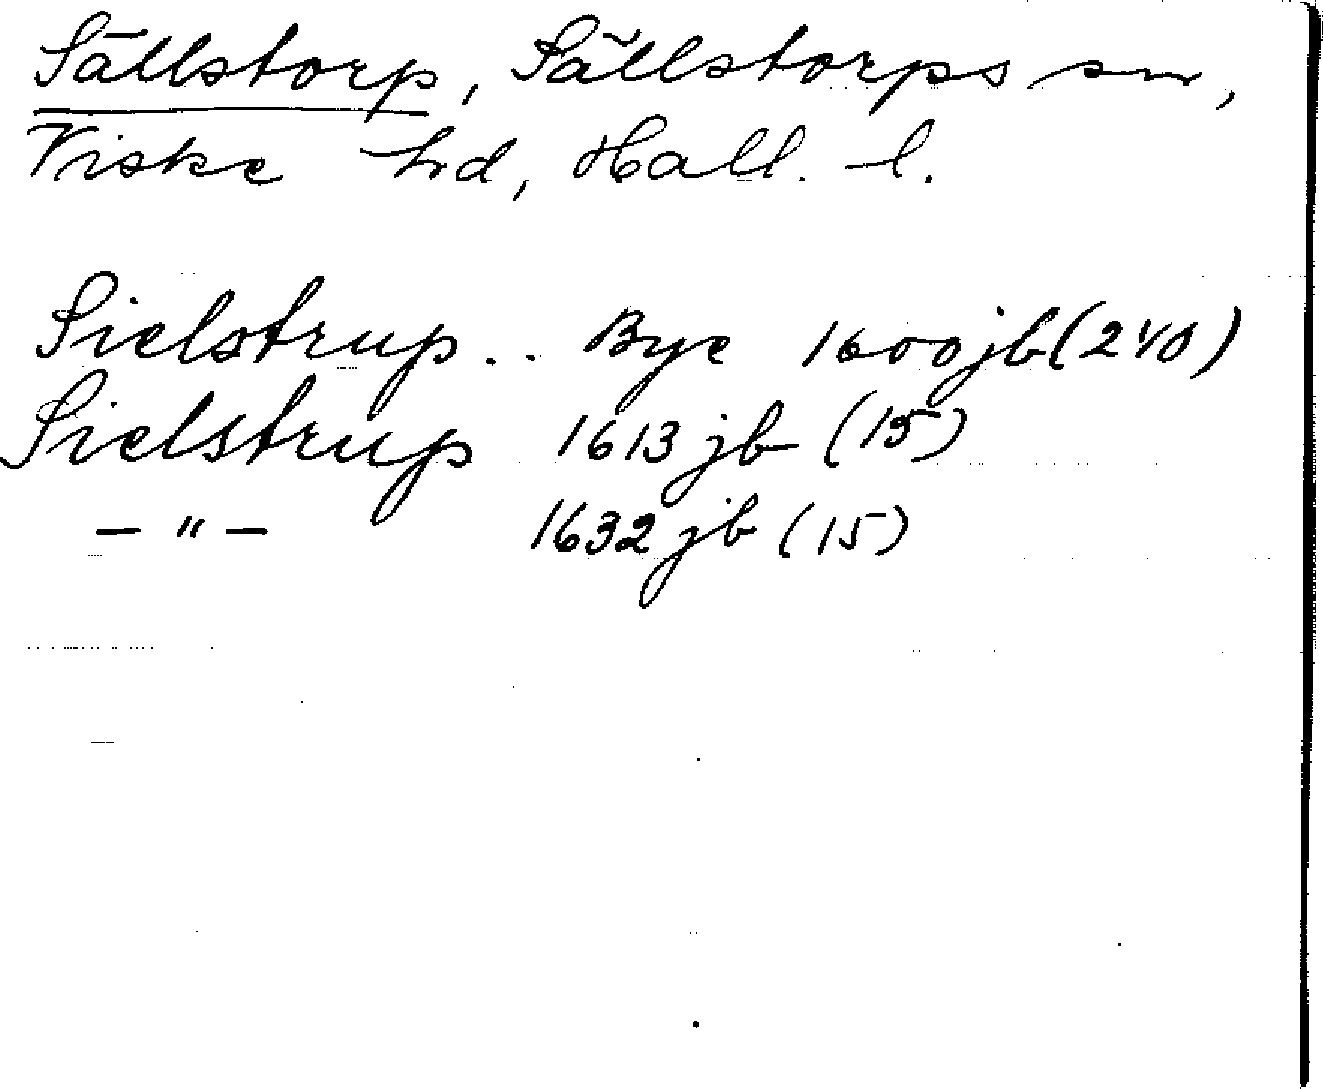 Sällstorp, Sällstorps sn,
Viske hd, Hall. l.
Sielstrup.. Bye 1600 jb (2v8)
Sielstrup 1613 jb (15)
— " — 1632 jb (15)